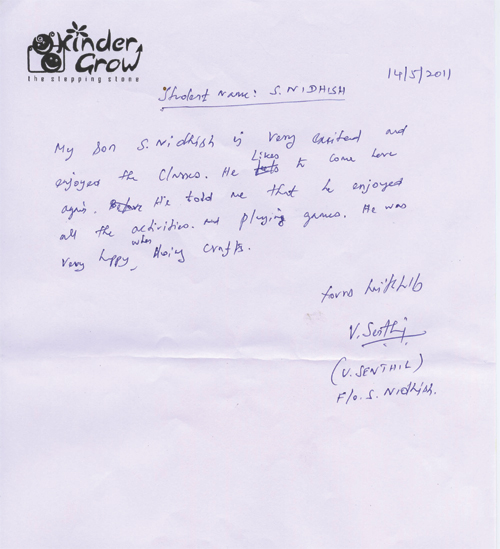 kinder
Grow
the stepping stone
14/5/2011
Student Name: S. NIDHISH
My Son S. Nidhish is very exsitend and
enjoyed the Classes. He Likes to come here
again. Before He told me that he enjoyed
all the activities. and playing games. He was
very happy, when doing Crafts.
V. Senthil
(V. SENTHIL)
F/o. S. Nidhish.